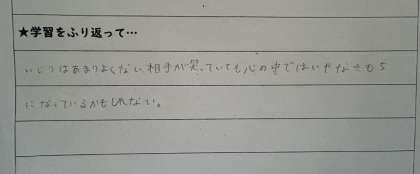 ★学習をふり返って…
いじりはあまりよくない、相手が笑っていても心の中ではいやなきもち
になっているかもしれない。